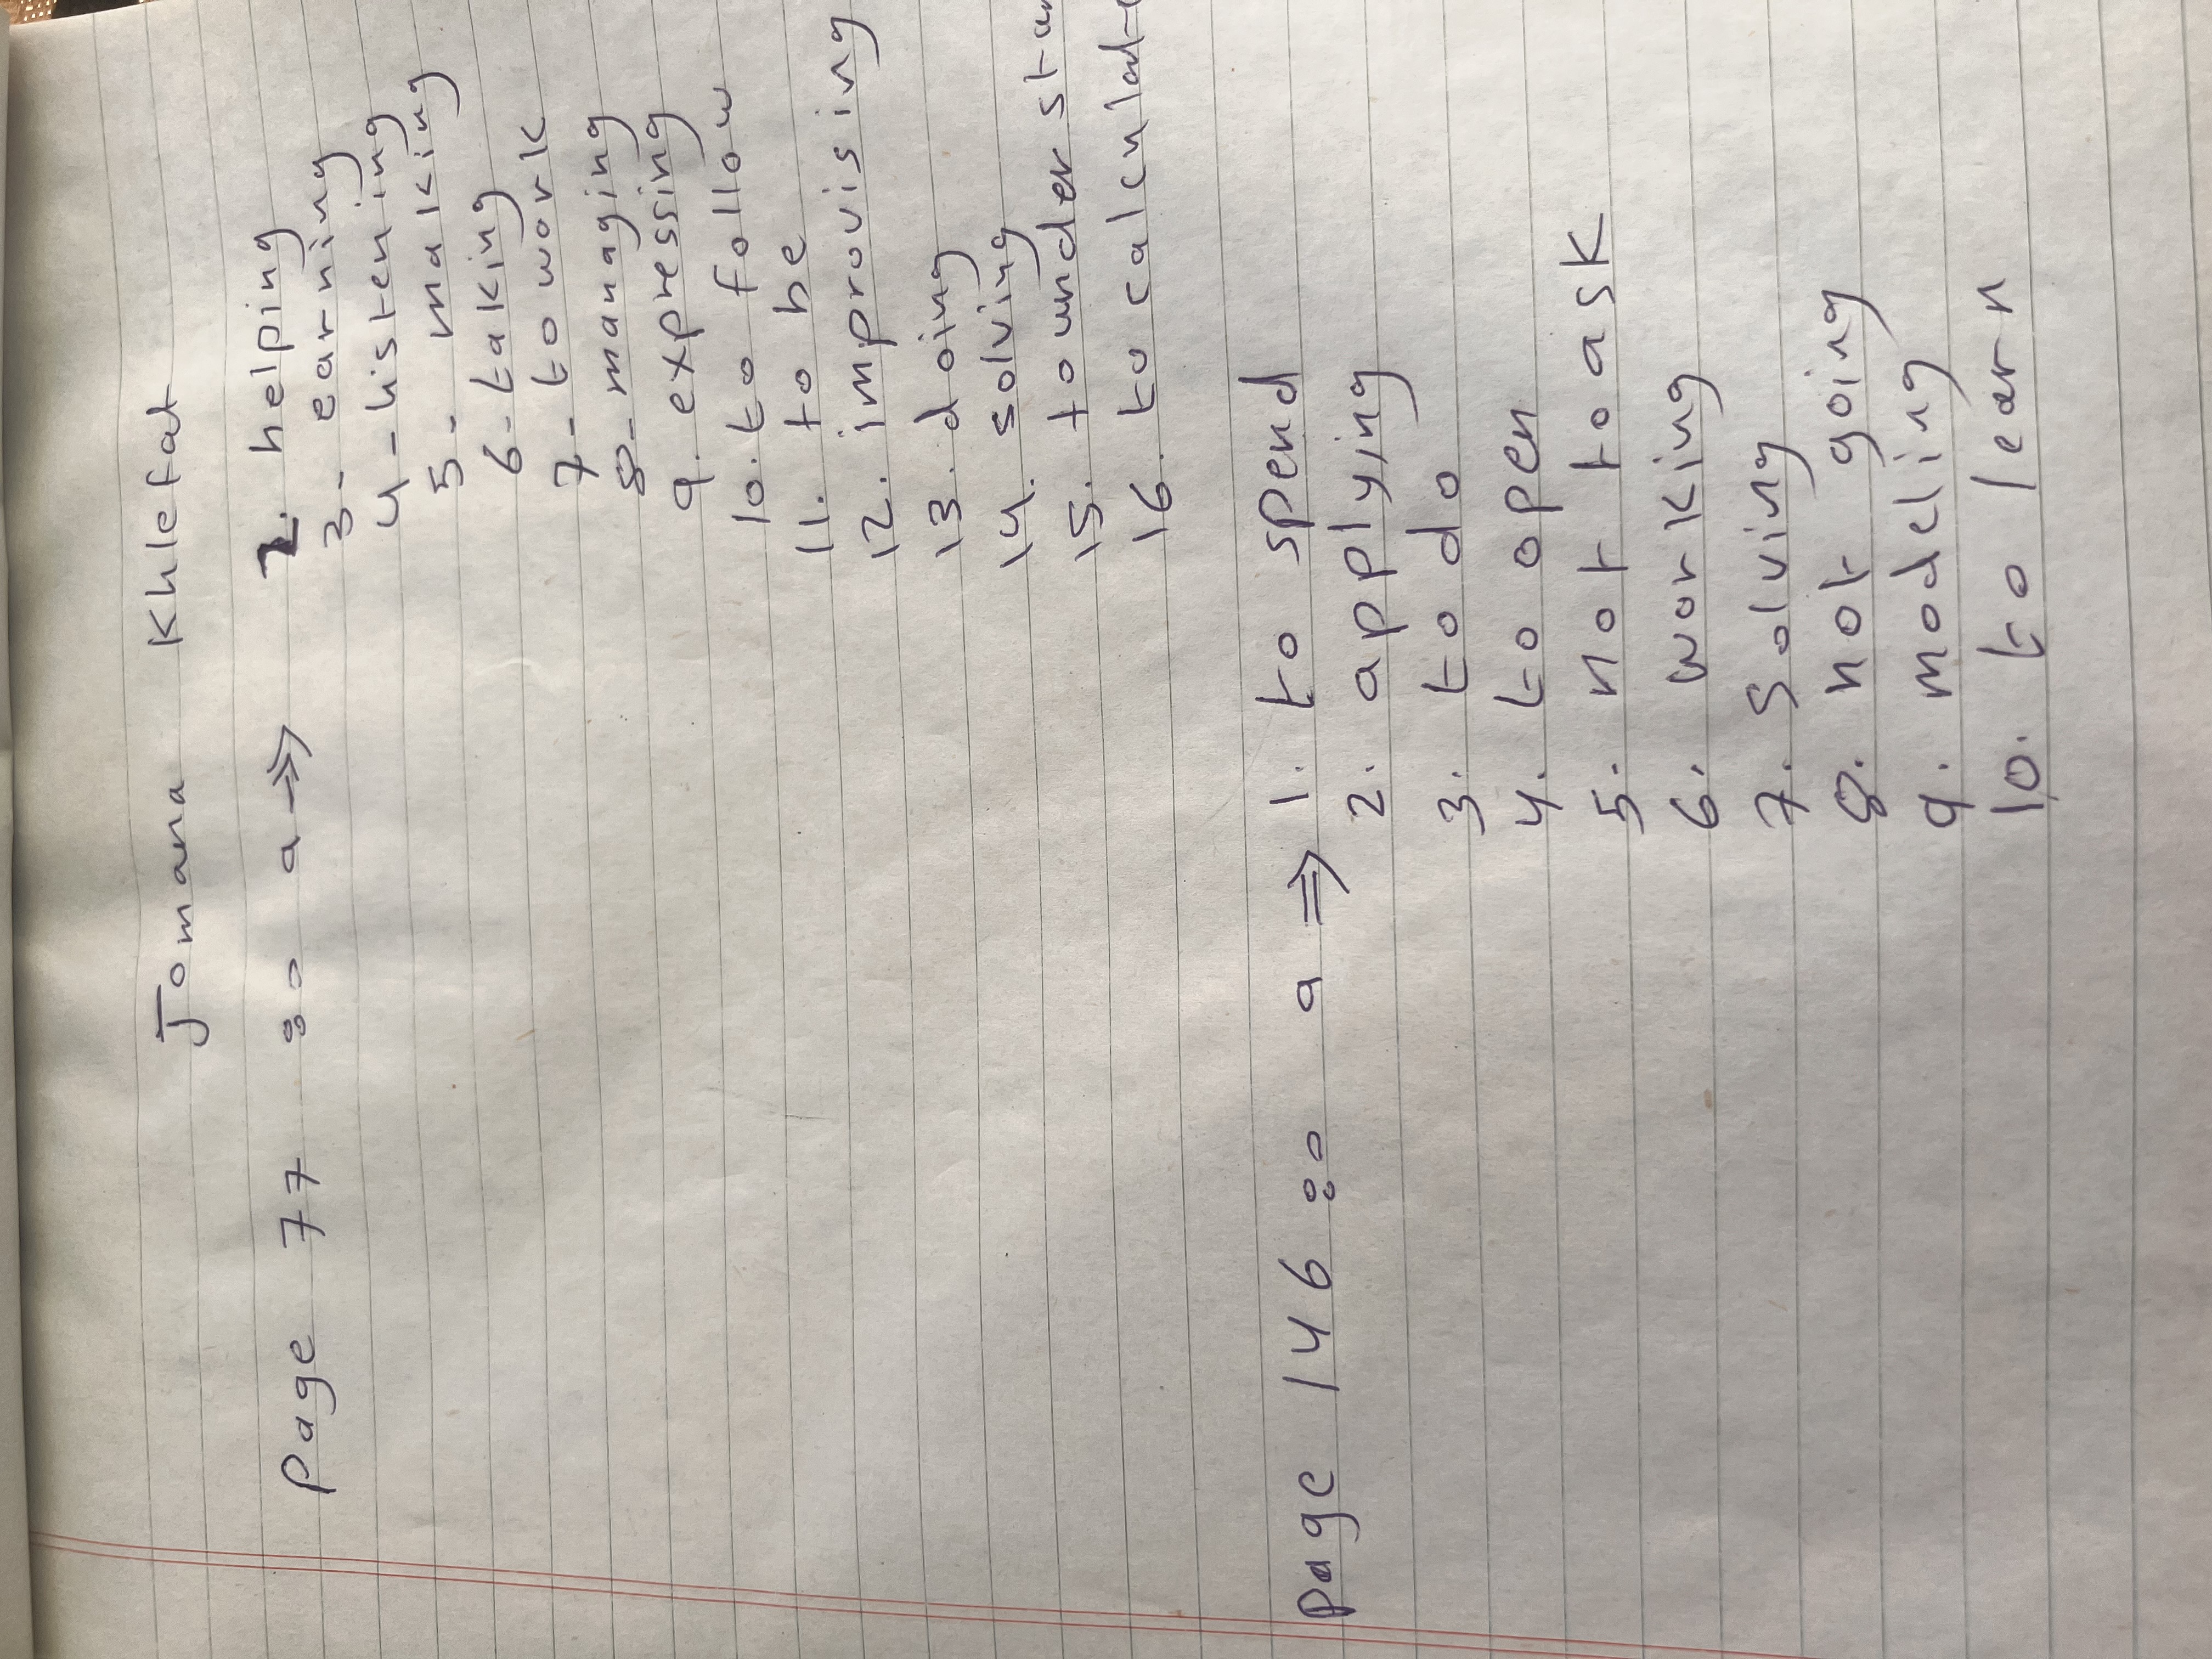 Jomana Khlefat
Page 77 : a → 2. helping
3- earning
4- listening
5- making
6- taking
7- to work
8- managing
9. expressing
10. to follow
11. to be
12. improvising
13. doing
14. solving
15. to
16. to
Page 146 : a ⇒ 1. to spend
2. applying
3. to do
4. to open
5. not to ask
6. working
7. Solving
8. not going
9. modeling
10. to learn